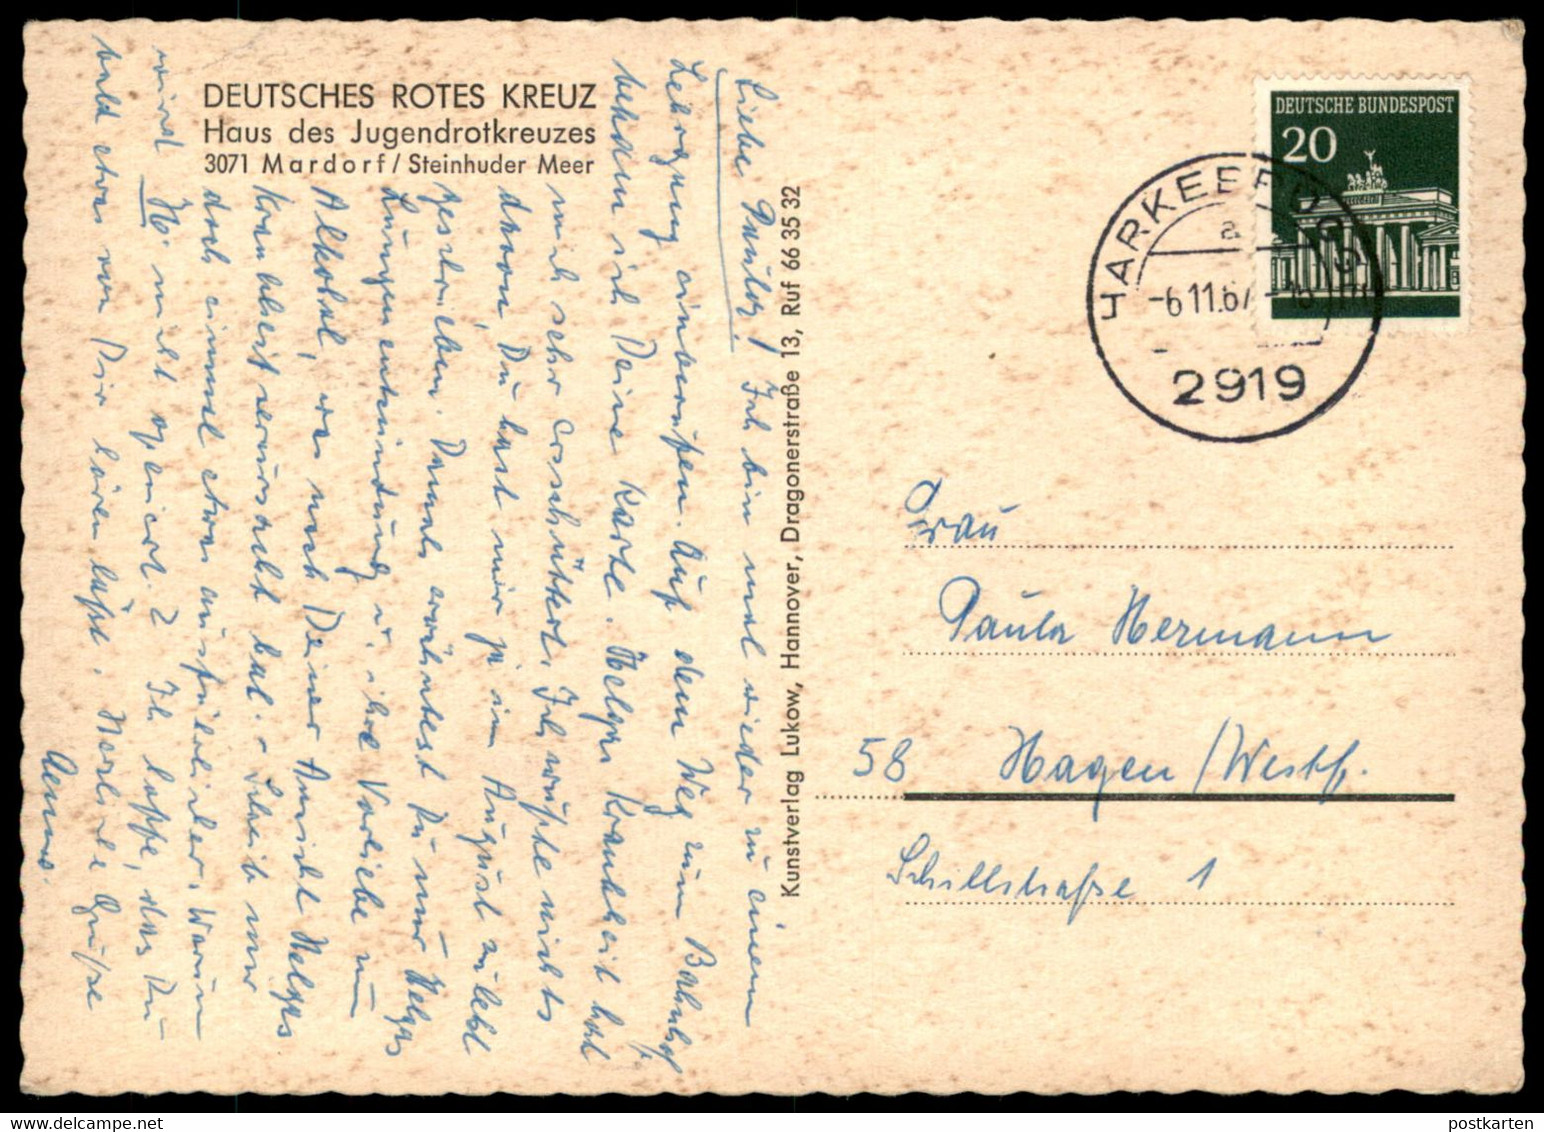 DEUTSCHES ROTES KREUZ
Haus des Jugendrotkreuzes
3071 Mardorf / Steinhuder Meer
Liebe Paula! Ich bin mal wieder zu einem
Lehrgang einberufen. Auf dem Weg zum Bahnhof
bekam ich Deine Karte. Helgas Krankheit hat
mich sehr erschüttert. Ich wußte nichts
davon, Du hast mir ja im August zuletzt
geschrieben. Damals erwähntest Du nur Helgas
Lungenentzündung u. ihre Vorliebe zum
Alkohol, der nach Deiner Ansicht Helgas
Krankheit verursacht hat. Schreib mir
doch einmal etwas ausführlicher. Warum
wird H. nicht operiert? Ich hoffe, das Du
bald etwas von Dir hören läßt. Herzliche Grüße
Kunstverlag Lukow, Hannover, Dragonerstraße 13, Ruf 66 35 32
DEUTSCHE BUNDESPOST
20
HARKEBRÜGGE
a
-6.11.67-16
2919
Frau
Paula Hermann
58 Hagen/Westf.
Schillstraße 1
postkarten